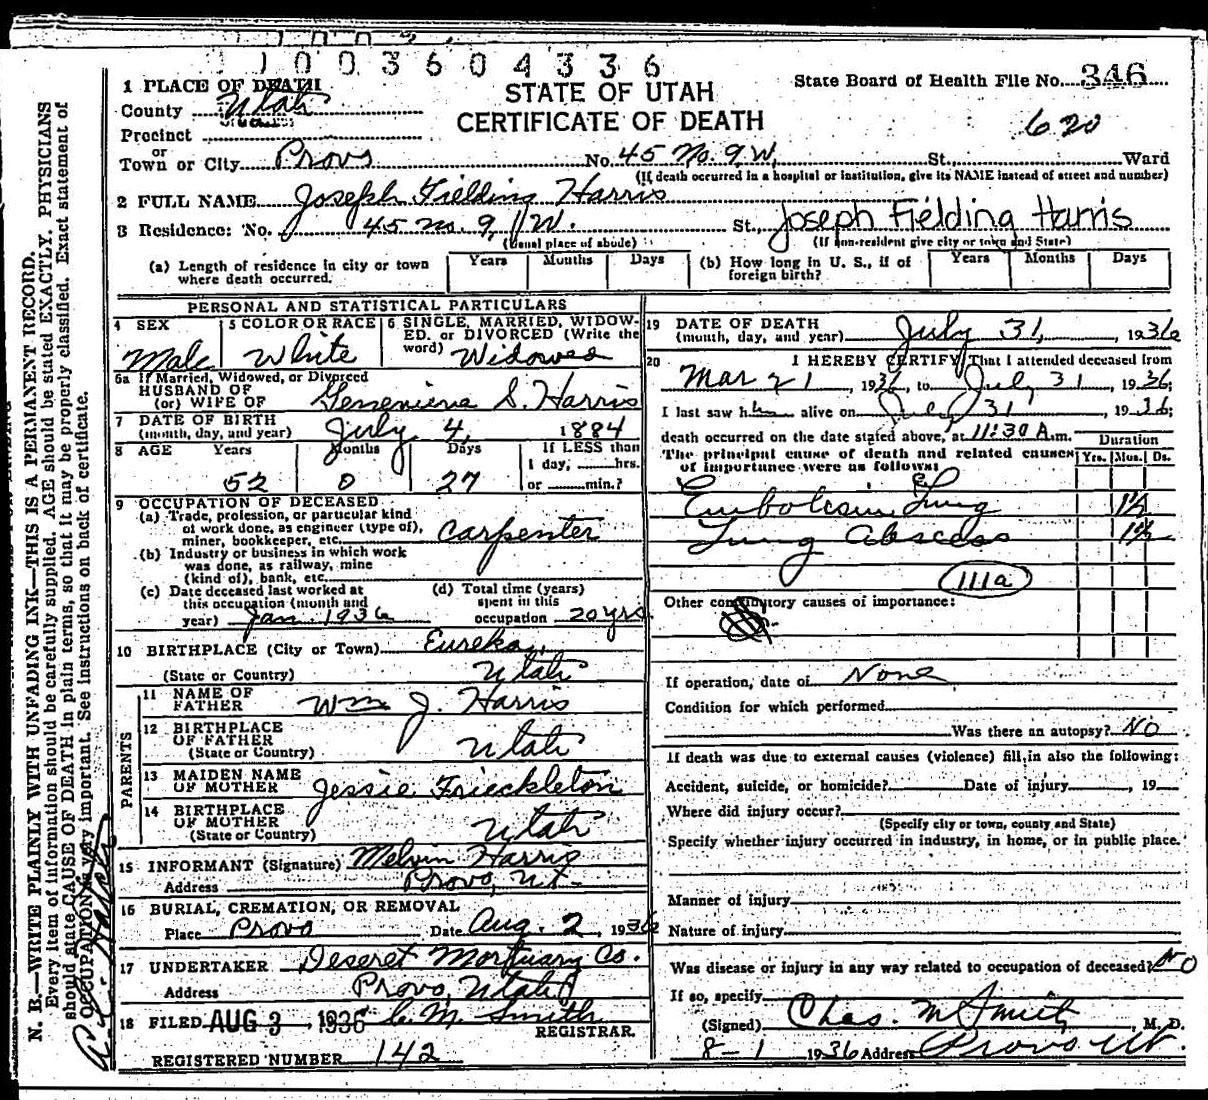 1003604336
1 PLACE OF DEATH
STATE OF UTAH
State Board of Health File No. 346
County Utah
CERTIFICATE OF DEATH
620
Precinct
or
Town or City Provo No. 45 No. 9 W. St., Ward
(If death occurred in a hospital or institution, give its NAME instead of street and number)
2 FULL NAME Joseph Fielding Harris
3 Residence: No. 45 No. 9 W. St., Joseph Fielding Harris
(Usual place of abode) (If non-resident give city or town and State)
(a) Length of residence in city or town where death occurred. Years Months Days
(b) How long in U. S., if of foreign birth? Years Months Days
PERSONAL AND STATISTICAL PARTICULARS
4 SEX Male
5 COLOR OR RACE White
6 SINGLE, MARRIED, WIDOWED, or DIVORCED (Write the word) Widowed
6a If Married, Widowed, or Divorced
HUSBAND OF
(or) WIFE OF S. Harris
7 DATE OF BIRTH
(month, day, and year) July 4, 1884
8 AGE Years Months Days If LESS than
1 day, hrs.
52 0 27 or min.?
9 OCCUPATION OF DECEASED
(a) Trade, profession, or particular kind
of work done, as engineer (type of),
miner, bookkeeper, etc. Carpenter
(b) Industry or business in which work
was done, as railway, mine
(kind of), bank, etc.
(c) Date deceased last worked at
this occupation (month and
year) Jan. 1936
(d) Total time (years)
spent in this
occupation 20 yrs
10 BIRTHPLACE (City or Town) Eureka,
(State or Country) Utah
PARENTS
11 NAME OF
FATHER Wm J. Harris
12 BIRTHPLACE
OF FATHER
(State or Country) Utah
13 MAIDEN NAME
OF MOTHER Jessie Frieckleton
14 BIRTHPLACE
OF MOTHER
(State or Country) Utah
15 INFORMANT (Signature) Melvin Harris
Address Provo, Ut.
16 BURIAL, CREMATION, OR REMOVAL
Place Provo Date Aug. 2, 1936
17 UNDERTAKER Deseret Mortuary Co.
Address Provo, Utah
18 FILED AUG 3 1936 C. M. Smith
REGISTRAR.
REGISTERED NUMBER 142
19 DATE OF DEATH
(month, day, and year) July 31, 1936
20 I HEREBY CERTIFY That I attended deceased from
Mar 21, 1936, to July 31, 1936;
I last saw him alive on July 31, 1936;
death occurred on the date stated above, at 11:30 A.m.
Duration
The principal cause of death and related causes
of importance were as follows: Yrs. Mos. Ds.
Embolism Lung
Lung Abscess
111a
Other contributory causes of importance:
If operation, date of None
Condition for which performed
Was there an autopsy? NO
If death was due to external causes (violence) fill in also the following:
Accident, suicide, or homicide? Date of injury , 19
Where did injury occur?
(Specify city or town, county and State)
Specify whether injury occurred in industry, in home, or in public place.
Manner of injury
Nature of injury
Was disease or injury in any way related to occupation of deceased? NO
If so, specify
(Signed) Chas. M Smith, M. D.
8-1 1936 Address Provo Ut.
N. B.—WRITE PLAINLY WITH UNFADING INK—THIS IS A PERMANENT RECORD.
Every item of information should be carefully supplied. AGE should be stated EXACTLY. PHYSICIANS
should state CAUSE OF DEATH in plain terms, so that it may be properly classified. Exact statement of
OCCUPATION is very important. See instructions on back of certificate.